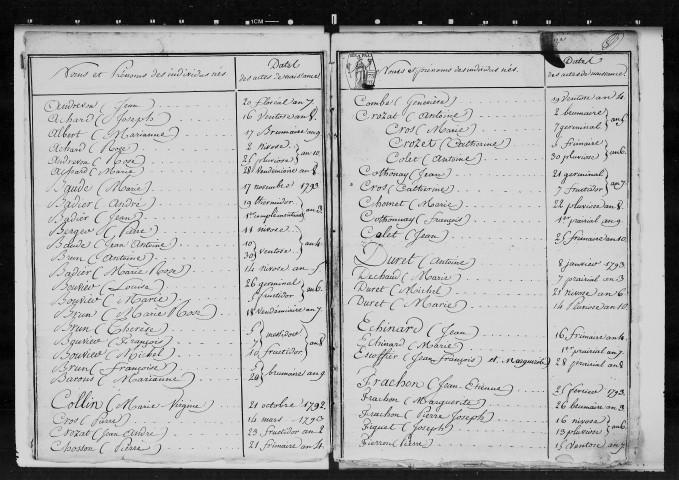 Noms et Prénoms des individus nés.
Dates des actes de naissance
Andrevon (Jean) 20 floreal an 7
Achard (Joseph) 16 Ventose an 8.
Albert (Marianne) 17 Brumaire an 9
Achard (Rose) 2 nivose
Andrevon (Rose) 25 pluviose } an 10
Achard (Marie) 28 Vendemiaire an 8.
Baude (Marie) 17 novembre 1793
Badier (André) 19 thermidor
Badier (Jean) 1er complementaire } an 3.
Berger (Pierre) 11 nivose
Baude (Jean Antoine) 10
Brun (Antoine) 30 } ventose } an 4
Badier (Marie Rose) 14 nivose an 5
Bouvier (Louise) 26 germinal
Bouvier (Marie) 5 fructidor } an 6.
Brun (Marie Rose) 18 Vendemiaire an 7
Brun (Therese) 5
Bouvier (François) 7 } messidor
Bouvier (Michel) 10 fructidor } an 8
Brun (Françoise) 5
Barons (Marianne) 29 } brumaire an 9
Collin (Marie Virginie) 21 octobre 1792.
Cros (Pierre) 14 mars 1793
Crozat (Jean André) 23 fructidor an 2
Choston (Pierre) 21 frimaire an 4.
Noms et prénoms des individus nés.
Dates des actes de naissance
Combe (Genevieve) 29 Ventose an 4.
Crozat (Antoine) 2 brumaire
Cros (Marie) 7 germinal } an 5
Crozet (Catherine) 2 frimaire
Colet (Antoine) 30 pluviose } an 6.
Cothonay (Jean) 21 germinal
Cros (Catherine) 7 fructidor } an 7
Chomet (Marie) 22 pluviose an 8.
Cothonnay (François) 1er prairial an 9
Colet (Jean) 25 frimaire an 10.
Duret (Antoine) 8 janvier 1793
Dechaud (Marie) 7 prairial an 3
Duret (Michel) 21 nivose an 6
Duret (Marie) 14 Pluviose an 10.
Echinard (Jean) 16 frimaire an 4.
Echinard (Marie) 1er prairial an 7.
Escoffier (Jean François) et Marguerite 28 prairial an 8
Frachon (Jean Etienne) 21 fevrier 1793.
Frachon (Marguerite) 26 brumaire an 3
Frachon (Pierre Joseph) 16 nivose
Fiquet (Joseph) 13 pluviose } an 6
Fierron (Pierre) 15 ventose an 7